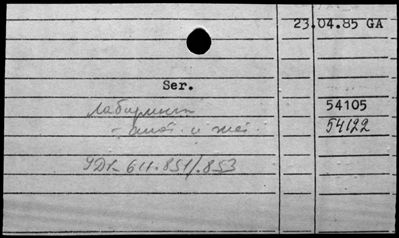 23.04.85 GA
Ser.
лабиринт 54105
- анат. и жив. 54122
УДК 611.851/.853